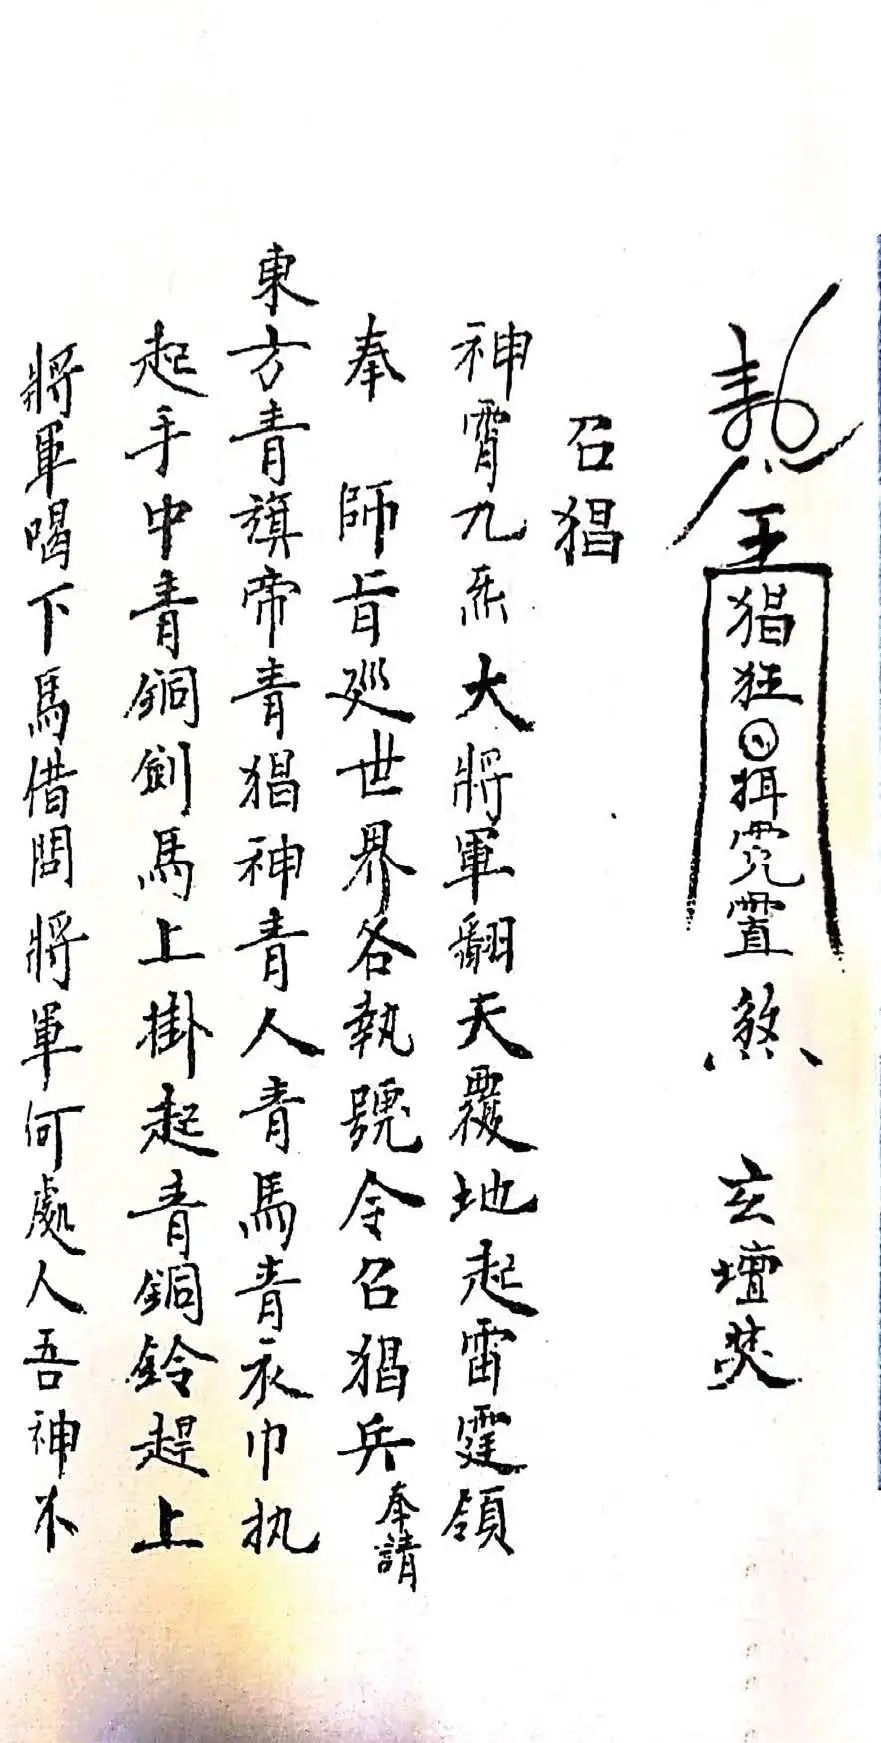 王猖狂 煞 玄壇
召猖
神霄九炁大將軍翻天覆地起雷霆領
奉 師旨廵世界各執號令召猖兵奉請
東方青旗帝青猖神青人青馬青衣巾执
起手中青銅劍馬上掛起青銅鈴趕上
將軍喝下馬借問將軍何處人吾神不